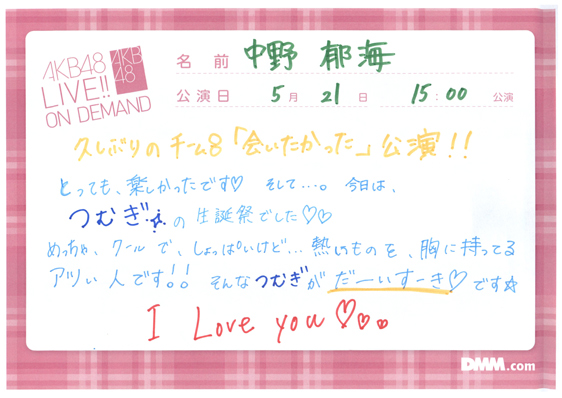 AKB48
LIVE!!
ON DEMAND
AKB
48
名前 中野 郁海
公演日 5月 21日 15:00 公演
久しぶりのチーム8「会いたかった」公演!!
とっても、楽しかったです♡ そして…。今日は、
つむぎ☆の生誕祭でした♡♡
めっちゃ、クールで、しょっぱいけど…熱いものを、胸に持ってる
アツい人です!! そんなつむぎがだーいすーき♡です☆
I Love you♡♡♡
DMM.com